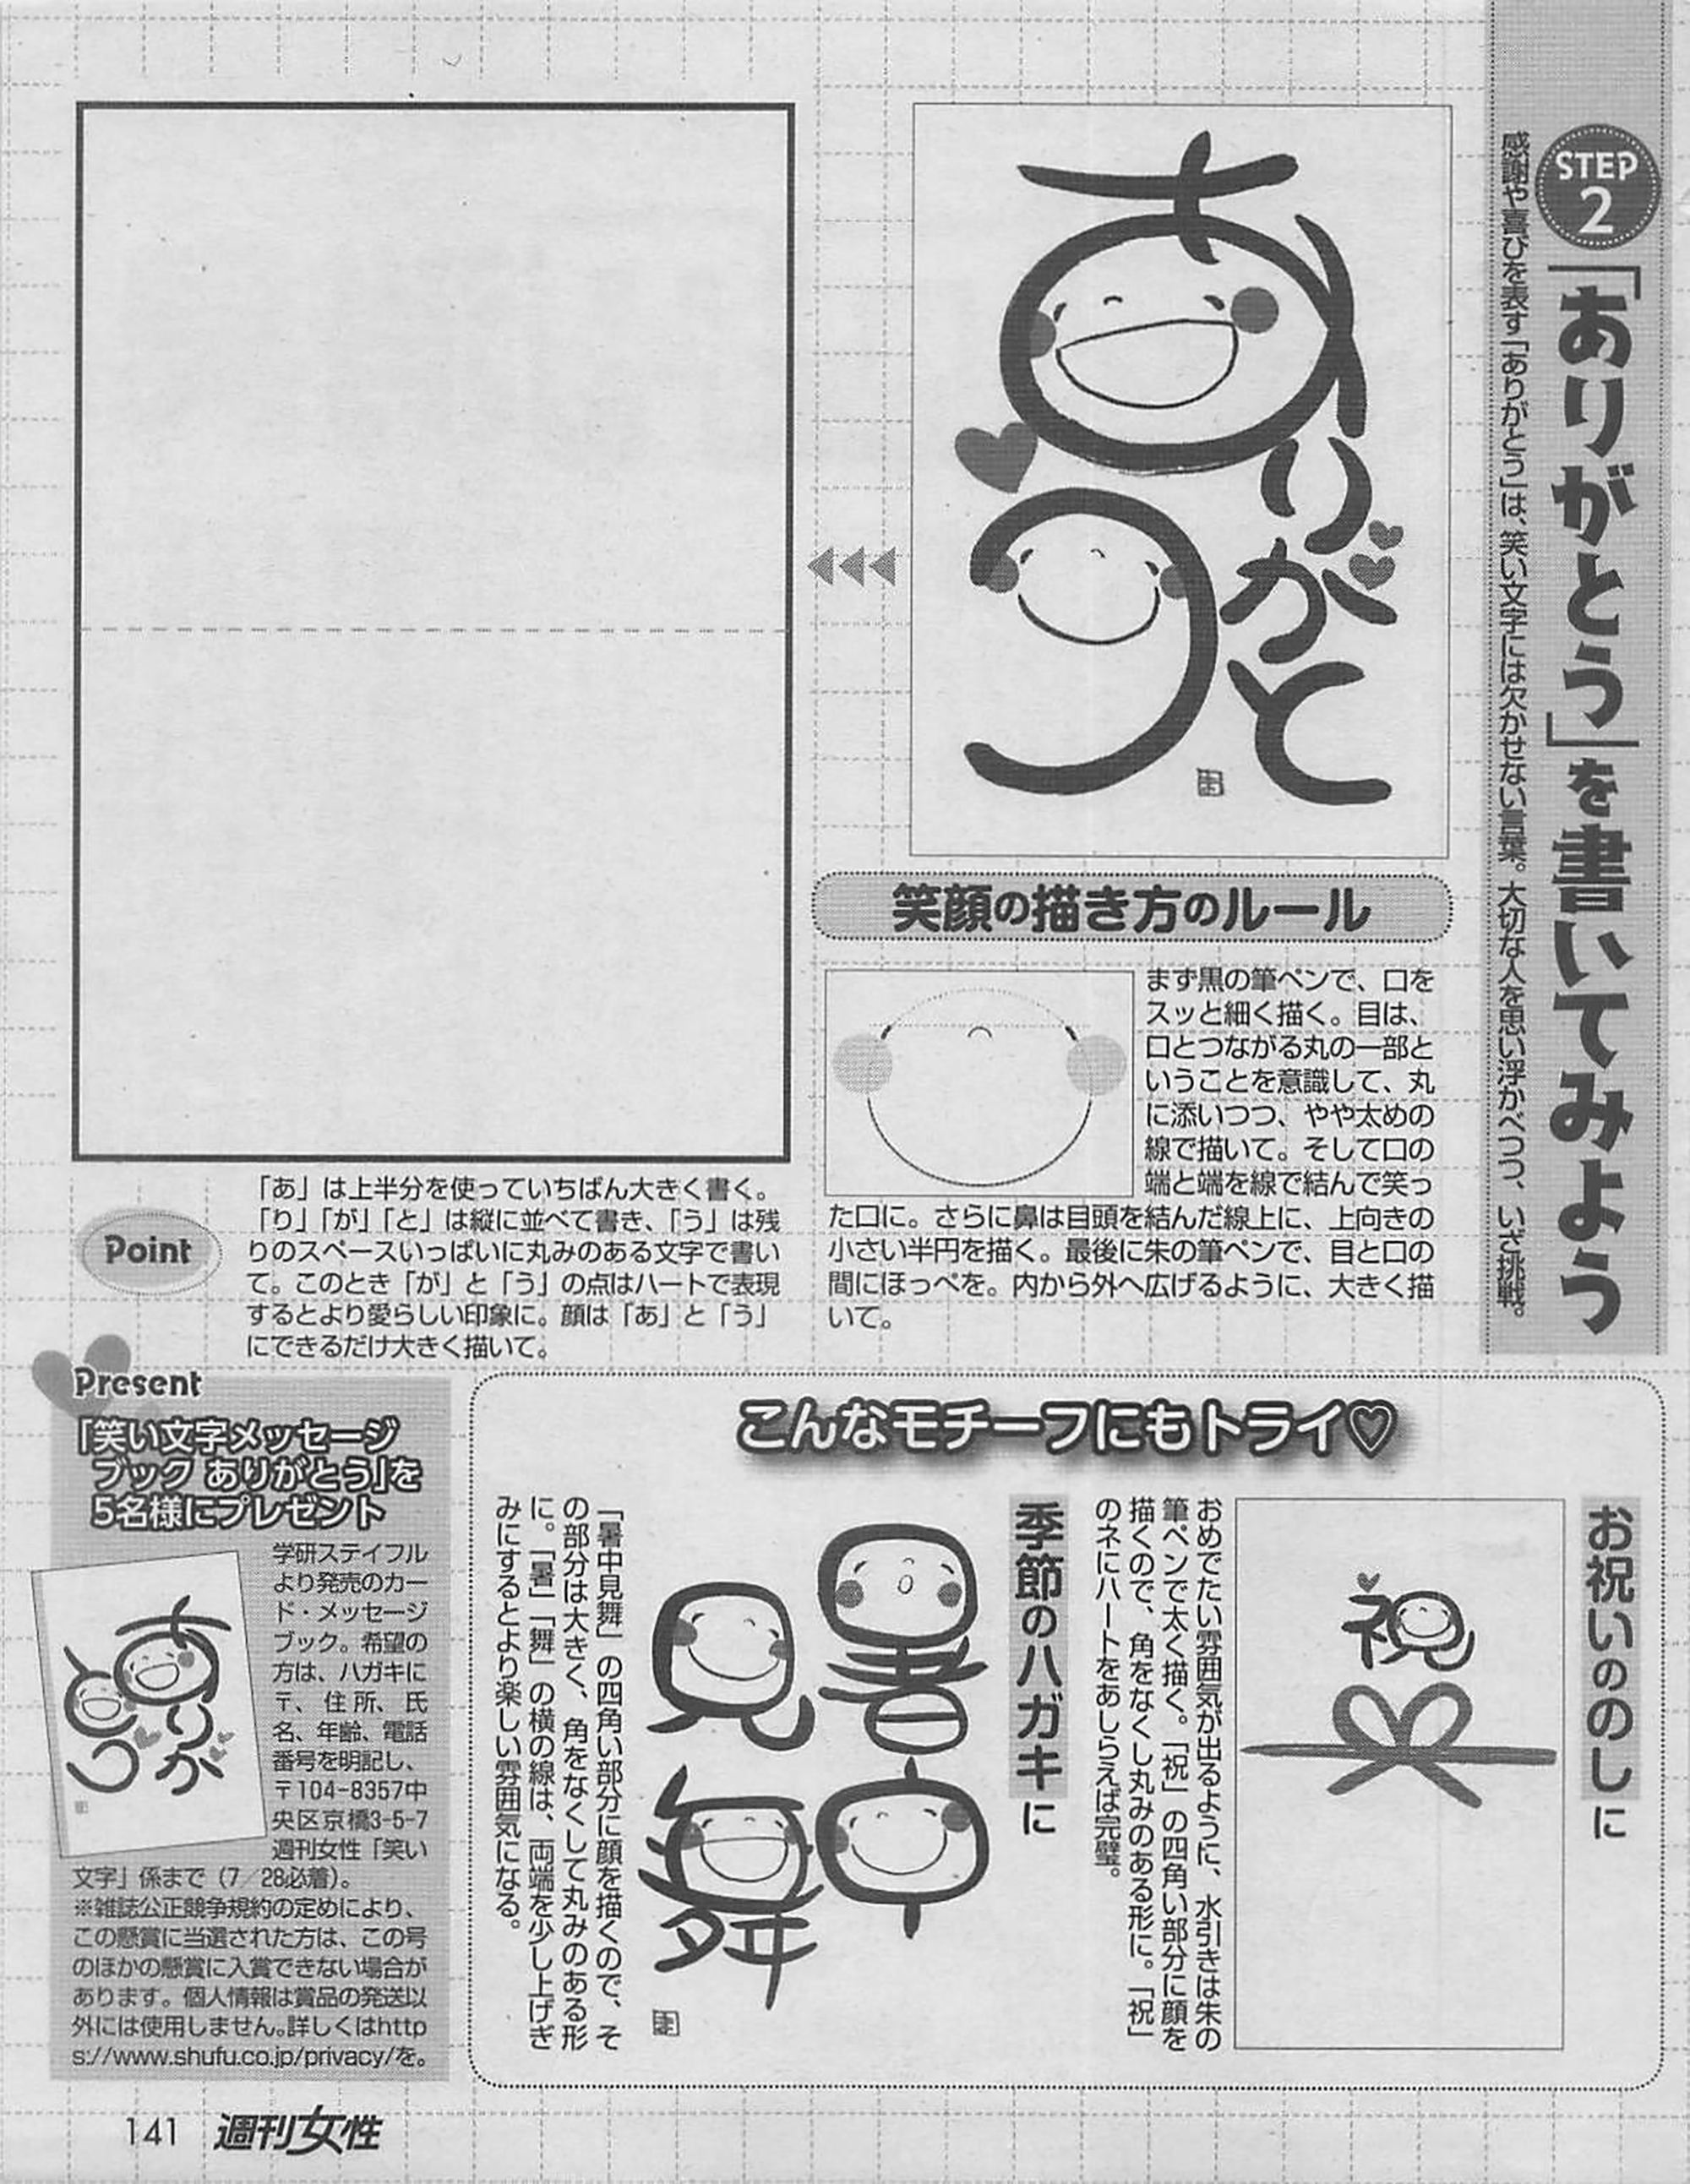 STEP
2
「ありがとう」を書いてみよう
感謝や喜びを表す「ありがとう」は、笑い文字には欠かせない言葉。大切な人を思い浮かべつつ、いざ挑戦。
ありがとう
笑顔の描き方のルール
まず黒の筆ペンで、口を
スッと細く描く。目は、
口とつながる丸の一部と
いうことを意識して、丸
に添いつつ、やや太めの
線で描いて。そして口の
端と端を線で結んで笑っ
た口に。さらに鼻は目頭を結んだ線上に、上向きの
小さい半円を描く。最後に朱の筆ペンで、目と口の
間にほっぺを。内から外へ広げるように、大きく描
いて。
Point
「あ」は上半分を使っていちばん大きく書く。
「り」「が」「と」は縦に並べて書き、「う」は残
りのスペースいっぱいに丸みのある文字で書い
て。このとき「が」と「う」の点はハートで表現
するとより愛らしい印象に。顔は「あ」と「う」
にできるだけ大きく描いて。
こんなモチーフにもトライ♡
お祝いののしに
祝
おめでたい雰囲気が出るように、水引きは朱の
筆ペンで太く描く。「祝」の四角い部分に顔を
描くので、角をなくし丸みのある形に。「祝」
のネにハートをあしらえば完璧。
季節のハガキに
暑中
見舞
「暑中見舞」の四角い部分に顔を描くので、そ
の部分は大きく、角をなくして丸みのある形
に。「暑」「舞」の横の線は、両端を少し上げぎ
みにするとより楽しい雰囲気になる。
Present
「笑い文字メッセージ
ブック ありがとう」を
5名様にプレゼント
ありがとう
学研ステイフル
より発売のカー
ド・メッセージ
ブック。希望の
方は、ハガキに
〒、住所、氏
名、年齢、電話
番号を明記し、
〒104-8357中
央区京橋3-5-7
週刊女性「笑い
文字」係まで（7／28必着）。
※雑誌公正競争規約の定めにより、
この懸賞に当選された方は、この号
のほかの懸賞に入賞できない場合が
あります。個人情報は賞品の発送以
外には使用しません。詳しくはhttp
s://www.shufu.co.jp/privacy/を。
141 週刊女性